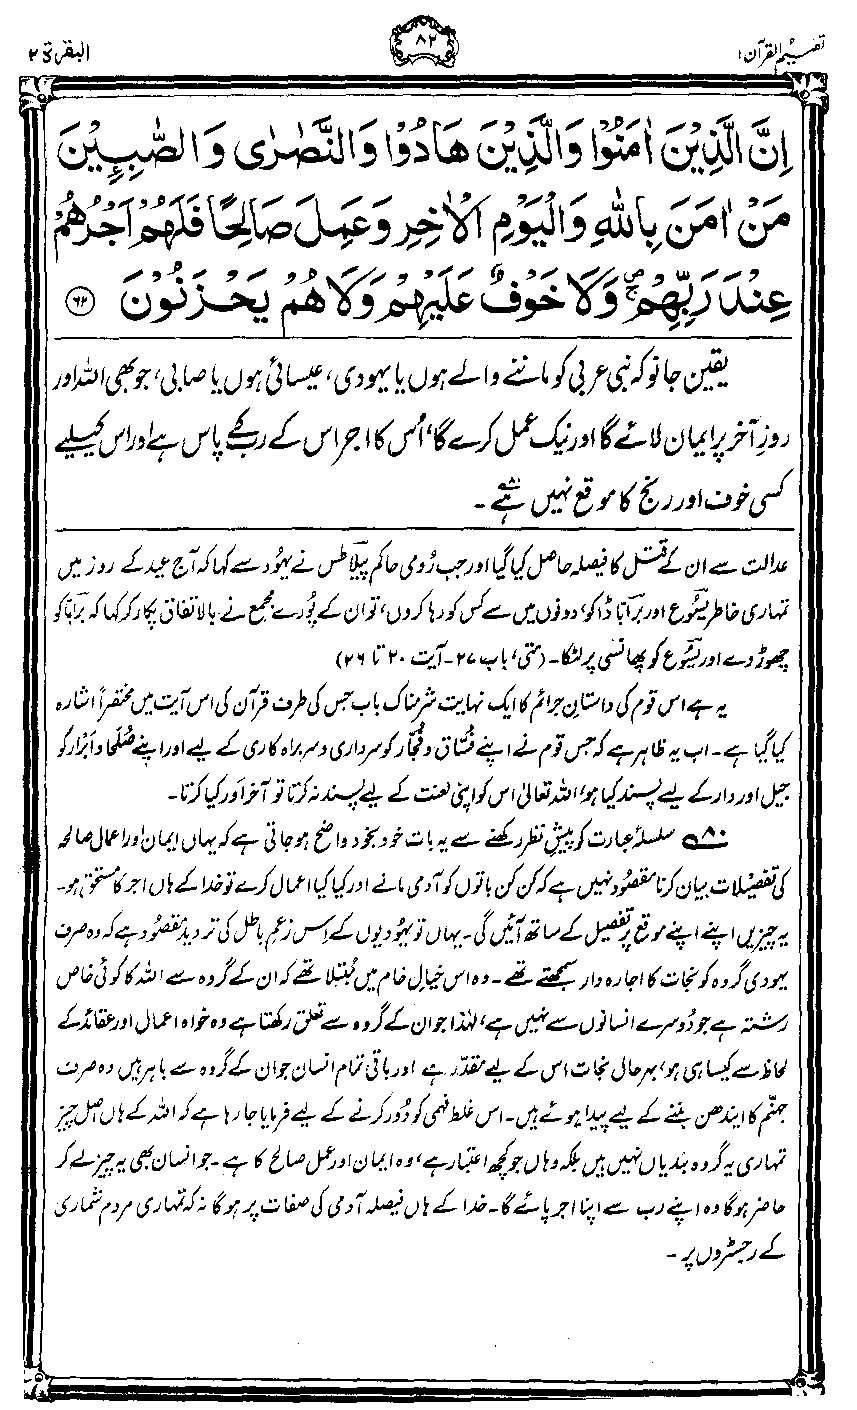 تفہیم القرآن ۱
۸۲
البقرۃ ۲
اِنَّ الَّذِيْنَ اٰمَنُوْا وَالَّذِيْنَ هَادُوْا وَالنَّصٰرٰى وَالصّٰبِـِٕيْنَ
مَنْ اٰمَنَ بِاللّٰهِ وَالْيَوْمِ الْاٰخِرِ وَعَمِلَ صَالِحًا فَلَهُمْ اَجْرُهُمْ
عِنْدَ رَبِّهِمْ ۚ وَلَا خَوْفٌ عَلَيْهِمْ وَلَا هُمْ يَحْزَنُوْنَ ۶۲
یقین جانو کہ نبی عربی کو ماننے والے ہوں یا یہودی، عیسائی ہوں یا صابی، جو بھی اللہ اور
روزِ آخر پر ایمان لائے گا اور نیک عمل کرے گا، اُس کا اجر اس کے رب کے پاس ہے اور اس کیلیے
کسی خوف اور رنج کا موقع نہیں ہے۸۰۔
عدالت سے ان کے قتل کا فیصلہ حاصل کیا گیا اور جب رُومی حاکم پیلاطس نے یہُود سے کہا کہ آج عید کے روز میں
تمہاری خاطر یسُوع اور برابّا ڈاکو، دونوں میں سے کس کو رہا کروں، تو ان کے پُورے مجمع نے بالاتفاق پکار کر کہا کہ برابّا کو
چھوڑ دے اور یسُوع کو پھانسی پر لٹکا۔ (متی، باب ۲۷۔ آیت ۲۰ تا ۲۶)
یہ ہے اس قوم کی داستانِ جرائم کا ایک نہایت شرمناک باب جس کی طرف قرآن کی اس آیت میں مختصراً اشارہ
کیا گیا ہے۔ اب یہ ظاہر ہے کہ جس قوم نے اپنے فُسّاق و فُجّار کو سرداری و سربراہ کاری کے لیے اور اپنے صُلحا و اَبرار کو
جیل اور دار کے لیے پسند کیا ہو، اللہ تعالیٰ اس کو اپنی لعنت کے لیے پسند نہ کرتا تو آخر اَور کیا کرتا۔
۸۰ سلسلۂ عبارت کو پیشِ نظر رکھنے سے یہ بات خود بخود واضح ہو جاتی ہے کہ یہاں ایمان اور اعمالِ صالحہ
کی تفصیلات بیان کرنا مقصُود نہیں ہے کہ کن کن باتوں کو آدمی مانے اور کیا کیا اعمال کرے تو خدا کے ہاں اجر کا مستحق ہو۔
یہ چیزیں اپنے اپنے موقع پر تفصیل کے ساتھ آئیں گی۔ یہاں تو یہُودیوں کے اِس زعمِ باطل کی تردید مقصُود ہے کہ وہ صرف
یہودی گروہ کو نجات کا اجارہ دار سمجھتے تھے۔ وہ اس خیالِ خام میں مُبتلا تھے کہ ان کے گروہ سے اللہ کا کوئی خاص
رشتہ ہے جو دُوسرے انسانوں سے نہیں ہے، لہٰذا جو ان کے گروہ سے تعلق رکھتا ہے وہ خواہ اعمال اور عقائد کے
لحاظ سے کیسا ہی ہو، بہرحال نجات اس کے لیے مقدّر ہے اور باقی تمام انسان جو ان کے گروہ سے باہر ہیں وہ صرف
جہنّم کا ایندھن بننے کے لیے پیدا ہوئے ہیں۔ اس غلط فہمی کو دُور کرنے کے لیے فرمایا جا رہا ہے کہ اللہ کے ہاں اصل چیز
تمہاری یہ گروہ بندیاں نہیں ہیں بلکہ وہاں جو کچھ اعتبار ہے، وہ ایمان اور عملِ صالح کا ہے۔ جو انسان بھی یہ چیز لے کر
حاضر ہو گا وہ اپنے رب سے اپنا اجر پائے گا۔ خدا کے ہاں فیصلہ آدمی کی صفات پر ہو گا نہ کہ تمہاری مردم شماری
کے رجسٹروں پر۔